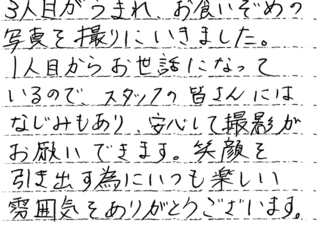 3人目がうまれ、お食いぞめの
写真を撮りにいきました。
1人目からお世話になって
いるので、スタッフの皆さんには
なじみもあり、安心して撮影が
お願いできます。笑顔を
引き出す為にいつも楽しい
雰囲気をありがとうございます。